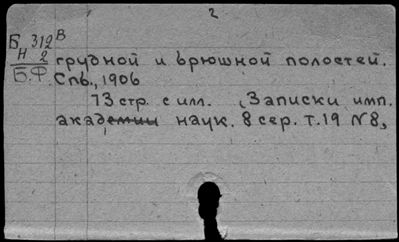 2
Б 312 В
Н 2
Б.Ф.
грудной и брюшной полостей.
Спб., 1906
73 стр. с илл. (Записки имп.
академии наук. 8 сер. т.19 N8,